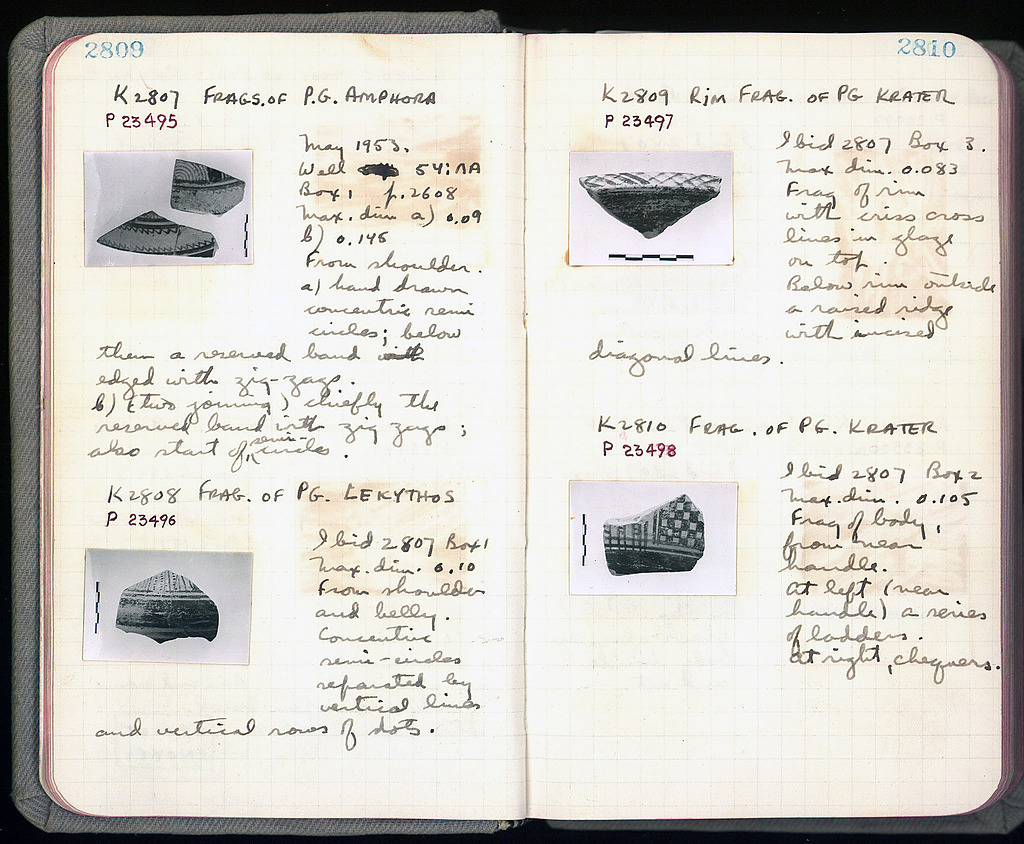 2809
K2807 FRAGS. OF P.G. AMPHORA
P 23495
May 1953.
Well 54:ΛA
Box 1 p. 2608
Max. dim a) 0.09
b) 0.146
From shoulder.
a) hand drawn
concentric semi
circles; below
them a reserved band
edged with zig-zags.
b) (two joining) chiefly the
reserved band with zig zags;
also start of semi-circles.
K2808 FRAG. OF PG. LEKYTHOS
P 23496
Ibid 2807 Box 1
Max. dim. 0.10
From shoulder
and belly.
Concentric
semi-circles
separated by
vertical lines
and vertical rows of dots.
2810
K2809 RIM FRAG. OF PG KRATER
P 23497
Ibid 2807 Box 3.
Max dim. 0.083
Frag of rim
with criss cross
lines in glaze
on top.
Below rim outside
a raised ridge
with incised
diagonal lines.
K2810 FRAG. OF PG. KRATER
P 23498
Ibid 2807 Box 2
Max. dim. 0.105
Frag of body,
from near
handle.
At left (near
handle) a series
of ladders.
At right, chequers.